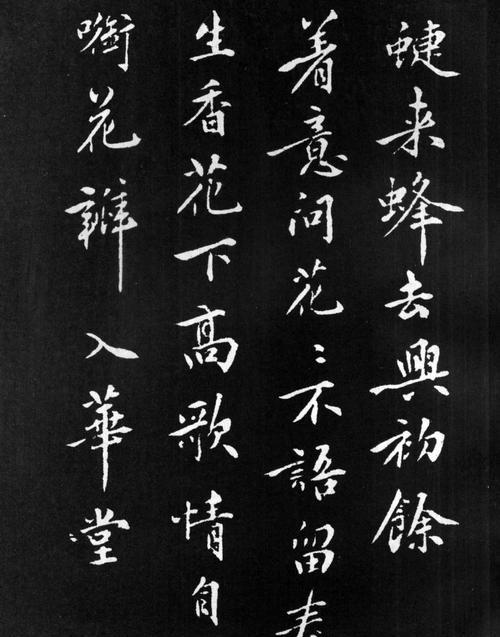 蜨来蜂去興初餘
着意问花〻不語留春
生香花下高歌情自
花瓣入華堂